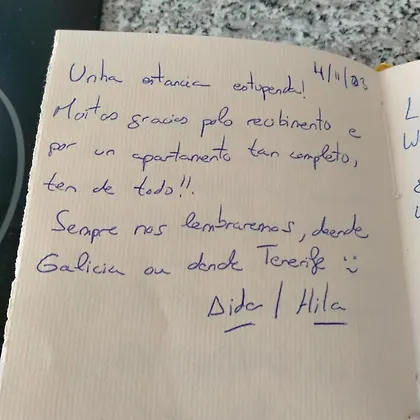 4/11/23
Unha estancia estupenda!
Moitas gracias polo recibimento e
por un apartamento tan completo,
ten de todo!!.
Sempre nos lembraremos, dende
Galicia ou dende Tenerife :)
Aida / Hila
L
W